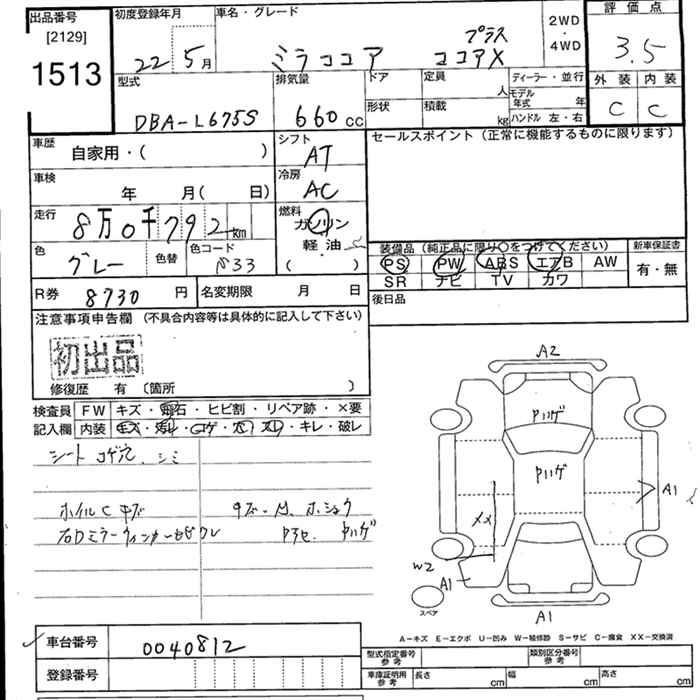 出品番号
[2129]
1513
初度登録年月
22 5月
車名・グレード
ミラココア プラス ココアX
2WD
・
4WD
評価点
3.5
外装 内装
C C
型式
DBA-L675S
排気量
660 cc
ドア
形状
定員 人
積載 kg
ディーラー・並行
モデル年式 年
ハンドル 左・右
車歴
自家用・( )
シフト
AT
セールスポイント (正常に機能するものに限ります)
車検
年 月( 日)
冷房
AC
走行
8万0千792km
燃料
ガソリン
軽油
( )
色
グレー
色替
色コード
S33
装備品 (純正品に限り○をつけてください)
PS PW ABS エアB AW
SR ナビ TV カワ
新車保証書
有・無
R券 8730 円
名変期限 月 日
後日品
注意事項申告欄 (不具合内容等は具体的に記入して下さい)
初出品
修復歴 有 〔箇所 〕
検査員記入欄
FW キズ・飛石・ヒビ割・リペア跡・×要
内装 キズ・汚れ・コゲ・穴・スレ・キレ・破レ
シート コゲ穴、シミ
ホイルC キズ
右Dミラーウィンカーヒビワレ
キズ
A2
ハゲ
ハゲ
XX
W2
A1
A1
A1
スペア
A−キズ E−エクボ U−凹み W−補修跡 S−サビ C−腐食 XX−交換済
車台番号
0040812
登録番号
型式指定番号 参考
類別区分番号 参考
車庫証明用 参考
長さ cm
幅 cm
高さ cm